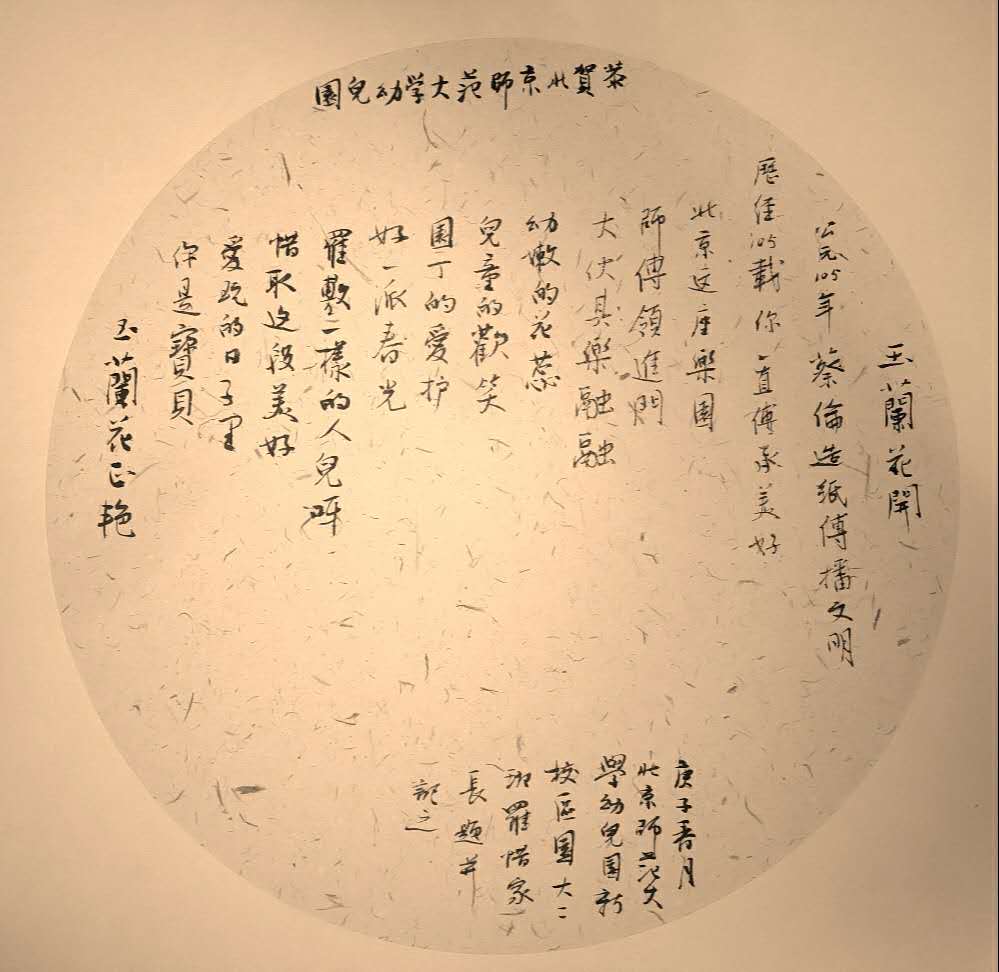 恭賀北京師范大学幼兒園
玉蘭花開
公元105年 蔡倫造紙傳播文明
歷經105載 你一直傳承美好
北京这座樂園
師傅領進門
大伙其樂融融
幼嫩的花蕊
兒童的歡笑
園丁的愛护
好一派春光
羅敷一樣的人兒呀
惜取这段美好
愛玩的日子里
你是寶貝
玉蘭花正艳
庚子春月
北京師范大
學幼兒園新
校區園大二
班羅惜家
長題并
記之